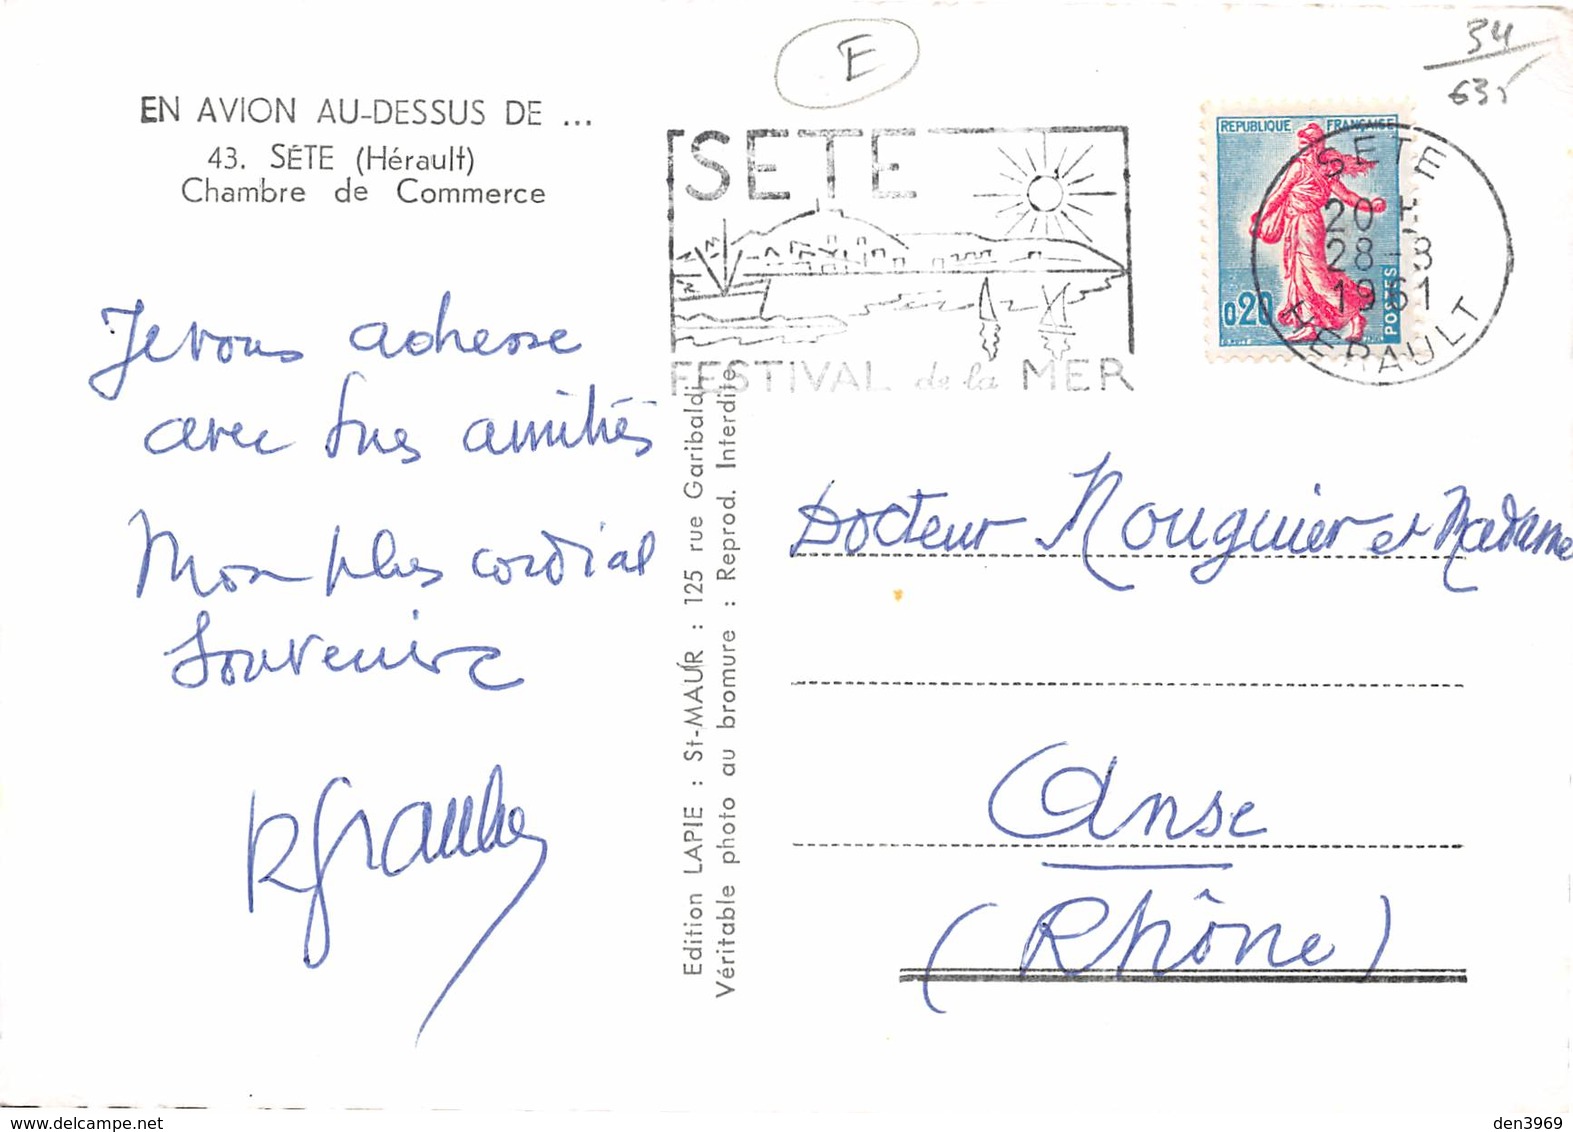 E
34
635
EN AVION AU-DESSUS DE ...
43. SÈTE (Hérault)
Chambre de Commerce
SETE
FESTIVAL de la MER
REPUBLIQUE FRANÇAISE
0,20
POSTES
SETE
20 H
28-8
1961
HERAULT
Je vous adresse
avec mes amitiés
Mon plus cordial
Souvenir
Edition LAPIE : St-MAUR : 125 rue Garibaldi
Véritable photo au bromure : Reprod. Interdite
Docteur Nouguier et Madame
Anse
(Rhône)
delcampe.net
den3969